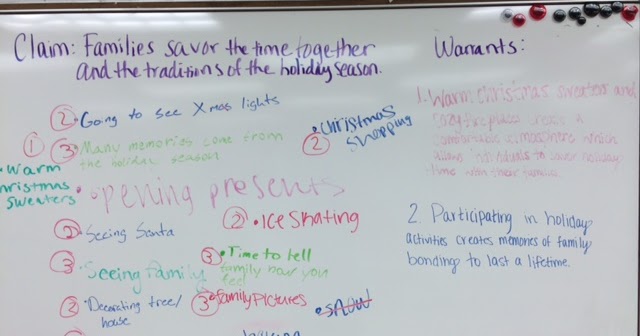 Claim: Families savor the time together
and the traditions of the holiday season.
② • Going to see Xmas lights
①
③ • Many memories come from
the holiday season
• Warm
Christmas
sweaters
② • Christmas
shopping
• opening presents
② • Seeing Santa
② • Ice Skating
③ • Seeing Family
③ • Time to tell
family how you
feel
② • Decorating tree/
house
③ • Family Pictures
• snow
Warrants:
1. Warm Christmas sweaters and
cozy fireplaces creates a
comfortable atmosphere which
allows individuals to savor holiday
time with their families.
2. Participating in holiday
activities creates memories of family
bonding to last a lifetime.